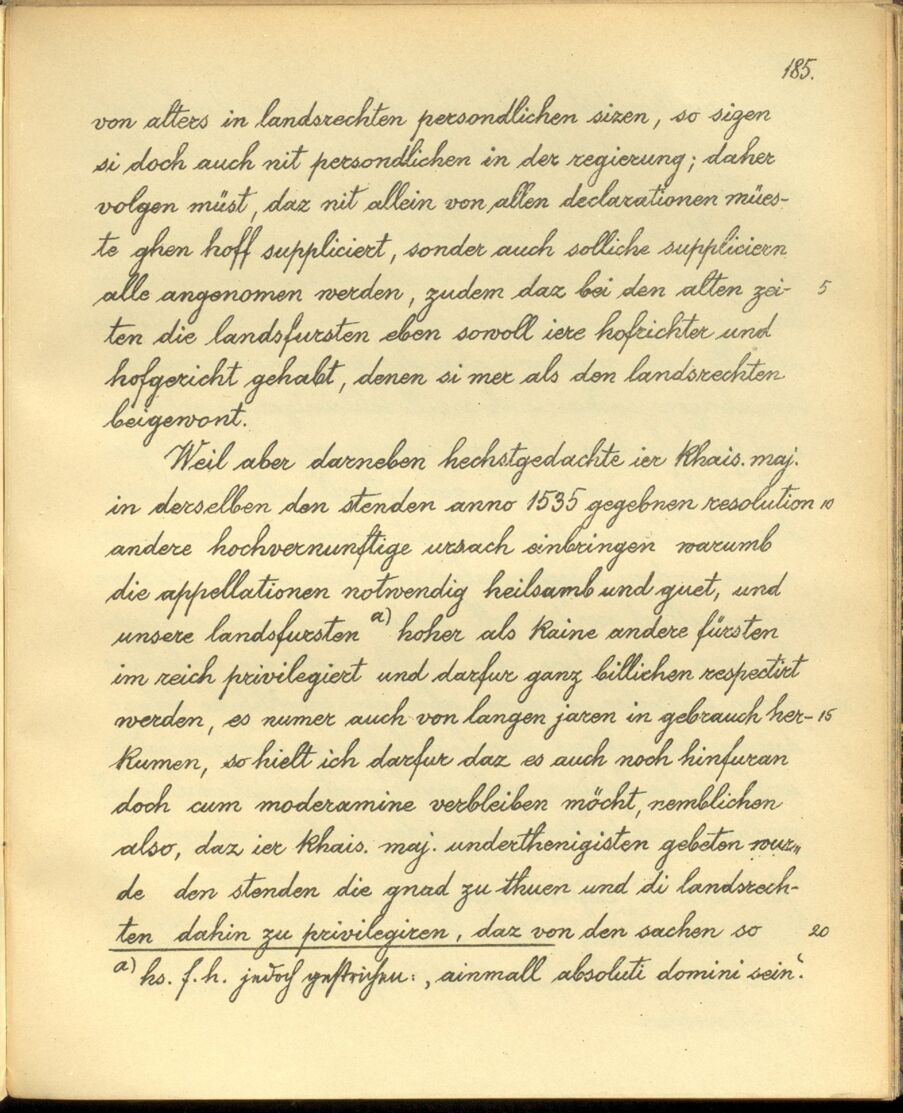 185.
von alters in landsrechten persondlichen sizen, so sigen
si doch auch nit persondlichen in der regierung; daher
volgen müst, daz nit allein von allen declarationen mües-
te ghen hoff suppliciert, sonder auch solliche suppliciern
alle angenomen werden, zudem daz bei den alten zei- 5
ten die landsfursten eben sowoll iere hofrichter und
hofgericht gehabt, denen si mer als den landsrechten
beigewont.
Weil aber darneben hechstgedachte ier khais. maj.
in derselben den stenden anno 1535 gegebnen resolution 10
andere hochvernunftige ursach einbringen warumb
die appellationen notwendig heilsamb und guet, und
unsere landsfursten a) hoher als kaine andere fürsten
im reich privilegiert und darfur ganz billichen respectirt
werden, es numer auch von langen jaren in gebrauch her- 15
kumen, so hielt ich darfur daz es auch noch hinfuran
doch cum moderamine verbleiben möcht, nemblichen
also, daz ier khais. maj. underthenigisten gebeten wur„
de den stenden die gnad zu thuen und di landsrech-
ten dahin zu privilegiren, daz von den sachen so 20
a) hs. f. h. jedoch gestrichen: „ainmall absoluti domini sein".